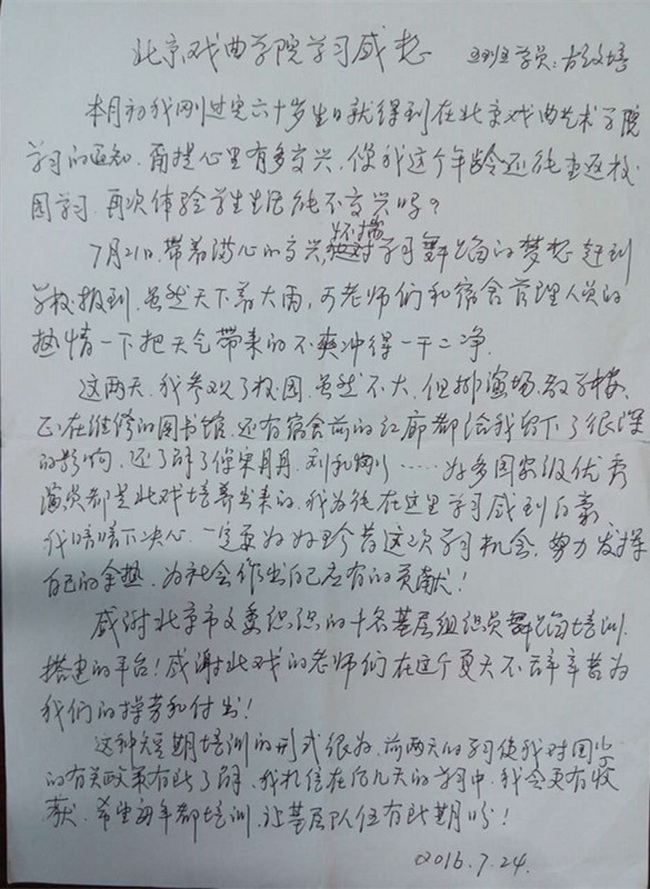 北京戏曲学院学习感想 五班学员:方文培
本月初我刚过完六十岁生日就得到在北京戏曲艺术学院
学习的通知,甭提心里有多高兴,像我这个年龄还能重返校
园学习,再次体验学生生活能不高兴吗?
7月21日,带着满心的高兴,怀揣学习舞蹈的梦想赶到
学校报到,虽然天下着大雨,可老师们和宿舍管理人员的
热情一下把天气带来的不爽冲得一干二净.
这两天,我参观了校园,虽然不大,但排演场、教学楼、
正在维修的图书馆,还有宿舍前的红廊都给我留下了很深
的影响,还了解了像宋丹丹、刘和刚……好多国家级优秀
演员都是北戏培养出来的,我为能在这里学习感到自豪,
我暗暗下决心,一定要好好珍昔这次学习机会,努力发挥
自己的余热,为社会作出自己应有的贡献!
感谢北京市文委组织的千名基层组织员舞蹈培训,
搭建的平台!感谢北戏的老师们在这个夏天不辞辛苦为
我们的操劳和付出!
这种短期培训的形式很好,前两天的学习使我对国家
的有关政策有所了解,我相信在后几天的学习中,我会更有收
获,希望每年都培训,让基层队伍有所期盼!
2016.7.24.